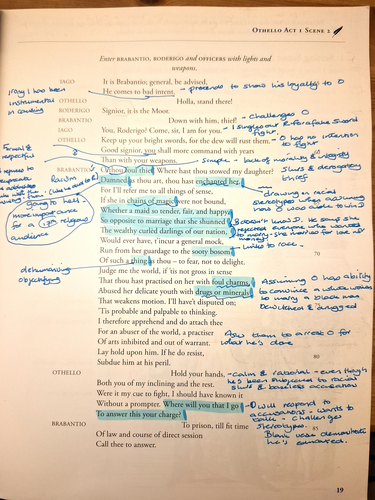 OTHELLO ACT 1 SCENE 2
Enter BRABANTIO, RODERIGO and OFFICERS with lights and
weapons.
IAGO It is Brabantio; general, be advised.
He comes to bad intent. - pretends to show his loyalty to O
Irony I has been
instrumental
in causing
OTHELLO Holla, stand there!
RODERIGO Signior, it is the Moor.
BRABANTIO Down with him, thief! - challenges O
IAGO You, Roderigo? Come, sir, I am for you. - I singles out R for a fake sword
fight.
OTHELLO Keep up your bright swords, for the dew will rust them. - O has no intention
to fight
Good signior, you shall more command with years
Than with your weapons. - Simple - lack of morality & integrity
Formal &
respectful
BRABANTIO O thou foul thief! Where hast thou stowed my daughter?
Slurs & derogatory
thief
Racism
Damned as thou art, thou hast enchanted her,
For I'll refer me to all things of sense,
- drawing on racial
stereotypes
If she in chains of magic were not bound,
Whether a maid so tender, fair, and happy,
So opposite to marriage that she shunned
The wealthy curled darlings of our nation,
Would ever have, t'incur a general mock,
Run from her guardage to the sooty bosom
- links to race.
70
Of such a thing as thou – to fear, not to delight.
Going to hell,
more importance
for a religious
audience
dehumanising
objectifying
Judge me the world, if 'tis not gross in sense
That thou hast practised on her with foul charms,
Abused her delicate youth with drugs or minerals
That weakens motion. I'll have't disputed on;
Assuming O has ability
to convince a white woman
to marry a black man.
Bewitched & drugged
'Tis probable and palpable to thinking.
I therefore apprehend and do attach thee
For an abuser of the world, a practiser
Of arts inhibited and out of warrant.
Ask them to arrest O for
what he's done
Lay hold upon him. If he do resist,
80
Subdue him at his peril.
OTHELLO Hold your hands, - calm & rational - even though
he's been subjected to racial
slurs & baseless accusation
Both you of my inclining and the rest.
Were it my cue to fight, I should have known it
Without a prompter. Where will you that I go
To answer this your charge?
- O will respond to
accusations - wants to
talk - challenges
stereotypes.
BRABANTIO To prison, till fit time
85
Of law and course of direct session
Call thee to answer.
Blank verse demonstrates
he's educated.
19